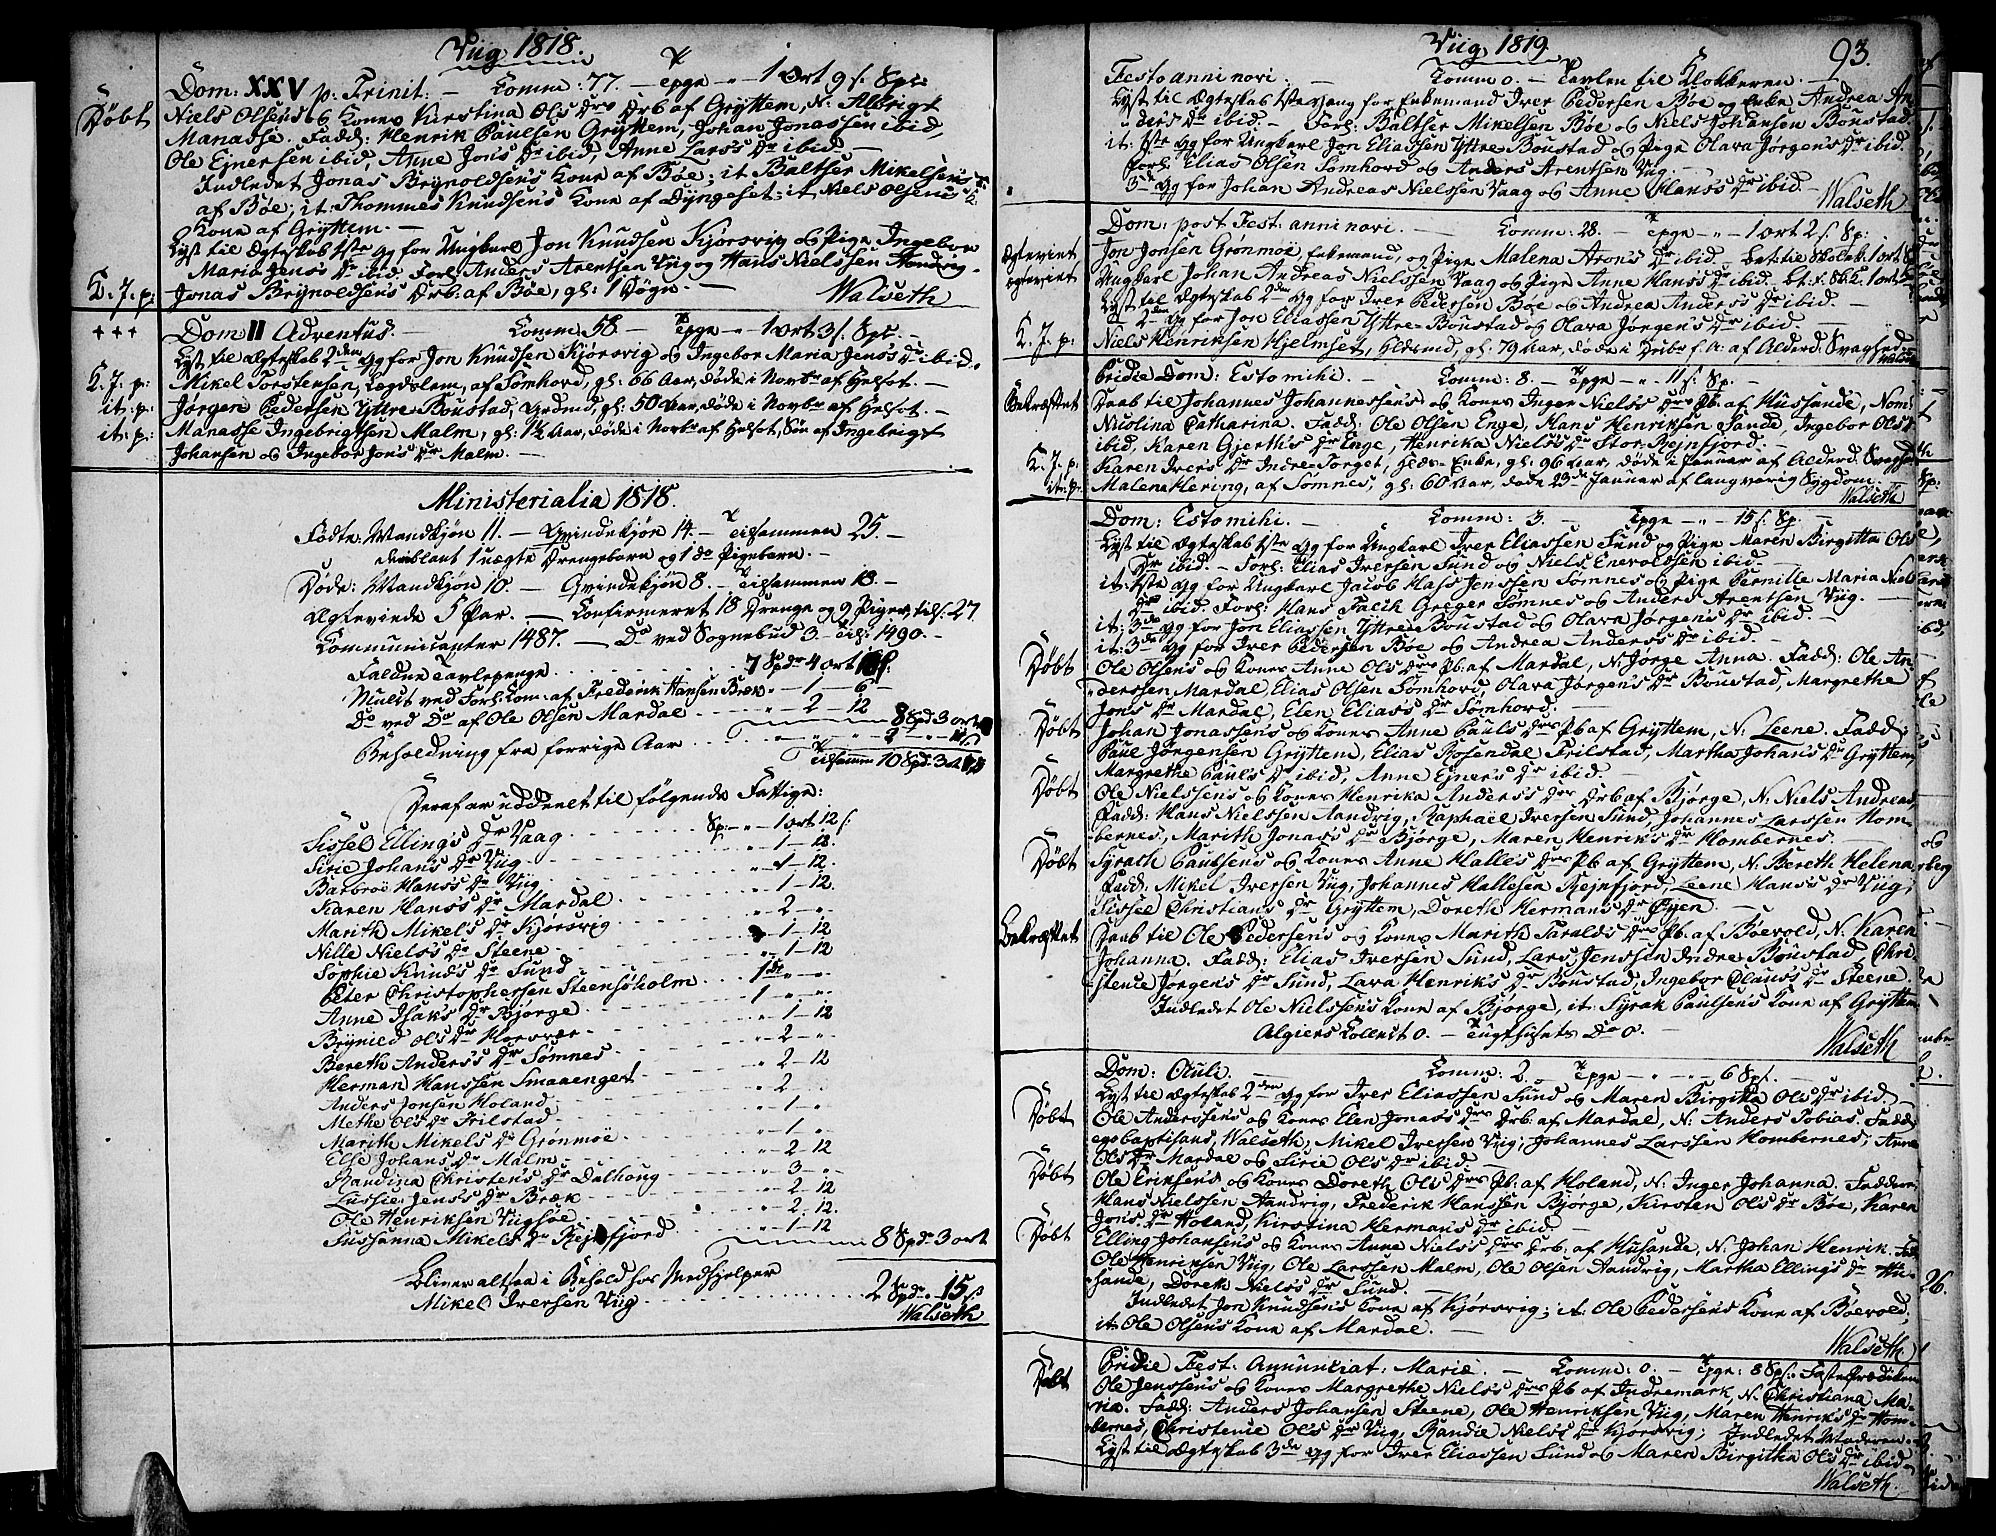 Viig 1818.
Dom: XXV p: Trinit: - Comm: 77. - Tpge - „ - 1 ort 9 s. Spec
Døbt
Niels Olsens og Kones Kirstina Ols Drs Drb af Gryttem, N: Albrigt
Manasse. Fadd: Henrik Paulsen Gryttem, Johan Jonassen ibid,
Ole Ejnersen ibid, Anne Jons Dr ibid, Anne Lars's Dr ibid -
Indledet Jonas Brynoldsen's Kone af Bøe; it Baltser Mikelsens K:
af Bøe; it: Thommes Knudsen's Kone af Dyngeset; it Niels Olsens
Kone af Gryttem. -
Lyst til Ægteskab 1ste Gg for Ungkarl Jon Knudsen Kjørsvig og Pige Ingebor
Maria Jens's Dr ibid. Forl: Anders Arentsen Viig og Hans Nielssen Aandvig.
K. J. p: Jonas Brynoldsen's Drb: af Bøe, gl: 1 Døgn. - Walseth
+++
Dom II Adventus. - Comm: 58. - Tpge - „ - 1 ort 3 s. Spec. -
Lyst til Ægteskab 2den Gg for Jon Knudsen Kjørsvig og Ingebor Maria Jens's Dr ibid.
K. J. p: Mikel Torstensen, Legdslem, af Sømhord, gl: 66 Aar, døde i Novbr af Helsot. -
it: p: Jørgen Pedersen Yttre Boustad, Grdmd, gl: 50 Aar, døde i Novbr af Helsot. -
it: p: Manasse Ingebrigtsen Malm, gl: 1½ Aar, døde i Novbr af Helsot, Søn af Ingebrigt
Johansen og Ingebor Jons Dr Malm. -
Ministerialia 1818.
Fødte: Mandkjøn 11. - Qvindekjøn 14. - Tilsammen 25. -
deriblant 1 uægte Drengebarn og 1 do Pigebarn. -
Døde: Mandkjøn 10. - Qvindekjøn 8. - Tilsammen 18. -
Ægteviede 5 Par. - Confirmeret 18 Drenge og 9 Piger, tils: 27
Communicanter 1487. - Do ved Sognebud 3. Tils: 1490. -
Falden Tavlepenge . . . 7 Spdr 4 ort
Mulct ved Forl: Com: af Frederik Hansen Bræk „ - 1 - 6 -
Do ved Do af Ole Olsen Mardal . . . „ - 2 - 12
8 Spd: 3 ort
Beholdning fra forrige Aar . . . 2
Tilsamm 10 Spd: 3 ort
Deraf er uddeelt til følgende Fattige:
Sissel Ellings Dr Vaag . . . Sp: - „ - 1 ort 12 s.
Sirie Johans Dr Viig . . . „ - 1 - 12.
Barbroe Hans's Dr Viig . . . „ - 1 - 12.
Karen Hans's Dr Mardal . . . „ - 1 - 12.
Marith Mikels Dr Kjørsvig . . . „ - 2 - „
Nille Niels's Dr Steene . . . „ - 1 - 12
Sophie Knuds Dr Sund . . . „ - 1 - 12
Peter Christophersen Steensøholm . . . 1 „ - „
Anne Isaks Dr Bjørge . . . 1 - „ - „
Brynild Ols Dr Horsvær . . . „ - 1 - 12
Bereth Anders's Dr Sømnes . . . „ - 2 - „
Herman Hanssen Smaaenget . . . „ - 2 - 12
Anders Jonsen Holand . . . „ - 2 -
Methe Ols Dr Trilstad . . . „ - 1 - „
Marith Mikels Dr Grønmøe . . . „ - 1 - „
Else Johans Dr Malm . . . „ - 2 - 12
Randina Christens Dr Dalhoug . . . „ - 3 - „
Lussie Jens's Dr Bræk . . . „ - 2 - 12
Ole Henriksen Viigsøe . . . „ - 2. 12.
Sussanna Mikels Dr Rejnfjord . . . „ - 1 - 12 8 Spd: 3 ort
Bliver altsaa i Behold hos Medhjelper
Mikel Iversen Viig . . . 2 Spd: „ 15 s
Walseth
Viig 1819. 93.
Festo anni novi. - Comm 0. - Tavlen til Klokkeren. -
Lyst til Ægteskab 1ste Gang for Enkemand Iver Pedersen Bøe og Enke Andrea An-
ders's Dr ibid. - Forl: Baltser Mikelsen Bøe og Niels Johansen Boustad
it: 1ste Gg for Ungkarl Jon Eliassen Yttre Boustad og Pige Olava Jørgens Dr ibid.
Forl: Elias Olsen Sømhord og Anders Arentsen Viig -
3de Gg for Johan Andreas Nielssen Vaag og Anne Hans's Dr ibid. - Walseth
Dom: post Fest: anni novi. - Comm: 28. - Tpge - „ - 1 ort 2 s. Sp:
Ægteviet Jon Jonsen Grønmøe, Enkemand, og Pige Malena Arons Dr ibid. - bet: til Skolek: 1 ort
Ægteviet Ungkarl Johan Andreas Nielssen Vaag og Pige Anne Hans's Dr ibid. bt: t: Sk: 1 ort
Lyst til Ægteskab 2den Gg for Iver Pedersen Bøe og Andrea Anders's Dr ibid. -
2den Gg for Jon Eliassen Yttre Boustad og Olava Jørgen's Dr ibid. -
K. J. p: Niels Henriksen Hjelmset, Huusmd, gl: 79 Aar, døde i Decbr f. A: af Alderd: Svaghed. Walseth
Pridie Dom: Estomihi. - Comm: 8. - Tpge - „ - 11 s. Sp. -
Bekræftet Daab til Johannes Johannessen's og Kones Inger Niels's Drs Pb. af Huusande, Nom:
Nicolina Catharina. Fadd: Ole Olsen Enge, Hans Henriksen Sande, Ingebor Ols Dr
ibid, Karen Gjerth's Dr Enge, Henrika Niels's Dr Stor-Rejnfjord. -
K. J. p. Karen Ivers Dr Indre-Torget, Enke, gl: 96 Aar, døde i Januar af Alderd: Svaghed
it: p: Malena Hering, af Sømnes, gl: 60 Aar, døde 23de Januar af langvarig Sygdom. Walseth
Dom: Estomihi. - Comm: 3. - Tpge - „ - 15 s. Sp. -
Lyst til Ægteskab 1ste Gg for Ungkarl Iver Eliassen Sund og Pige Maren Birgitta Ols
Dr ibid. - Forl: Elias Iversen Sund og Niels Enevoldsen ibid. -
it: 1ste Gg for Ungkarl Jacob Hass Jenssen Sømnes og Pige Pernille Maria Niels
Drs ibid. Forl: Hans Falch Greger Sømnes og Anders Arentsen Viig. -
it: 3de Gg for Jon Eliassen Yttre Boustad og Olava Jørgens Dr ibid. -
it: 3de Gg for Iver Pedersen Bøe og Andrea Anders's Dr ibid. -
Døbt Ole Olsens og Kones Anne Ols Drs Pb: af Mardal, N: Jørge Anna. Fadd: Ole An-
derssen Mardal, Elias Olsen Sømhord, Olava Jørgen's Dr Boustad, Margrethe
Jons Dr Mardal, Elen Elias's Dr Sømhord. -
Døbt Johan Jonassens og Kones Anne Pauls Drs Pb af Gryttem, N: Leene. Fadd:
Paul Jørgensen Gryttem, Elias Rosendal Trilstad, Martha Johans Dr Gryttem
Margrethe Paul's Dr ibid, Anne Ejner's Dr ibid. -
Døbt Ole Nielssens og Kones Henrika Anders's Drs Drb af Bjørge, N: Niels Andreas,
Fadd: Hans Nielssen Aandvig, Raphael Iversen Sund, Johannes Larssen Hom-
bernes, Marith Jonas's Dr Bjørge, Maren Henriks Dr Hombernes. -
Døbt Syrach Paulsens og Kones Anne Halles Drs Pb af Gryttem, N: Bereth Helena
Fadd: Mikel Iversen Viig, Johannes Hallesen Rejnfjord, Leene Hans's Dr Viig,
Sissel Christians Dr Gryttem, Doreth Hermans Dr Øyen. -
Bekræftet Daab til Ole Pedersens og Kones Marith Taralds Drs Pb. af Bøevold, N: Karen
Johanna. Fadd: Elias Iversen Sund, Lars Jenssen Indre Boustad, Chri-
stence Jørgens Dr Sund, Lava Henriks Dr Boustad, Ingebor Olaus's Dr Steene.
Indledet Ole Nielssens Kone af Bjørge, it: Syrak Paulsens Kone af Gryttem
Algiers Collect 0. - Tugthusets Do 0. -
Walseth
Dom: Oculi. - Comm: 2. - Tpge - „ - „ - 6 Sps.
Lyst til Ægteskab 2den Gg for Iver Eliassen Sund og Maren Birgitta Ols Dr ibid. -
Døbt Ole Anderssens og Kones Elen Jonas's Drs Drb: af Mardal, N: Anders Tobias. Fadd:
ego baptisans, Walseth, Mikel Iversen Viig, Johannes Larssen Hombernes, Anne
Ols Dr Mardal og Sirie Ols Dr ibid. -
Døbt Ole Eriksens og Kones Doreth Ols Drs Pb: af Holand, N: Inger Johanna. Fadder:
Hans Nielssen Aandvig, Frederik Hanssen Bjørge, Kirsten Ols Dr Bøe, Karen
Jons Dr Holand, Kirstina Herman's Dr ibid. -
Døbt Elling Johansens og Kones Anne Niels's Drs Drb: af Husande, N: Johan Henrik. Fad:
Ole Henriksen Viig, Ole Larssen Malm, Ole Olsen Aandvig, Martha Elling's Dr Hu-
sande, Doreth Niels's Dr Sund. -
Indledet Jon Knudsens Kone af Kjørsvig; it: Ole Pedersens Kone af Bøevold,
it: Ole Olsen's Kone af Mardal. -
Walseth
Pridie Fest: Annunciat: Mariæ. - Comm: 0. - Tpge: 8 Sps. Fasteprædiken
Døbt Ole Jenssen's og Kones Margrethe Niels's Drs Pb af Indremark, N: Christiana Ma-
ria. Fadd: Anders Johansen Steene, Ole Henriksen Viig, Maren Henriks Dr Hom-
bernes, Christence Ols Dr Viig, Randie Niels's Dr Kjørsvig; Indledet Moderen -
Lyst til Ægteskab 3de Gg for Iver Eliassen Sund og Maren Birgitta Ols Dr ibid -
Walseth.